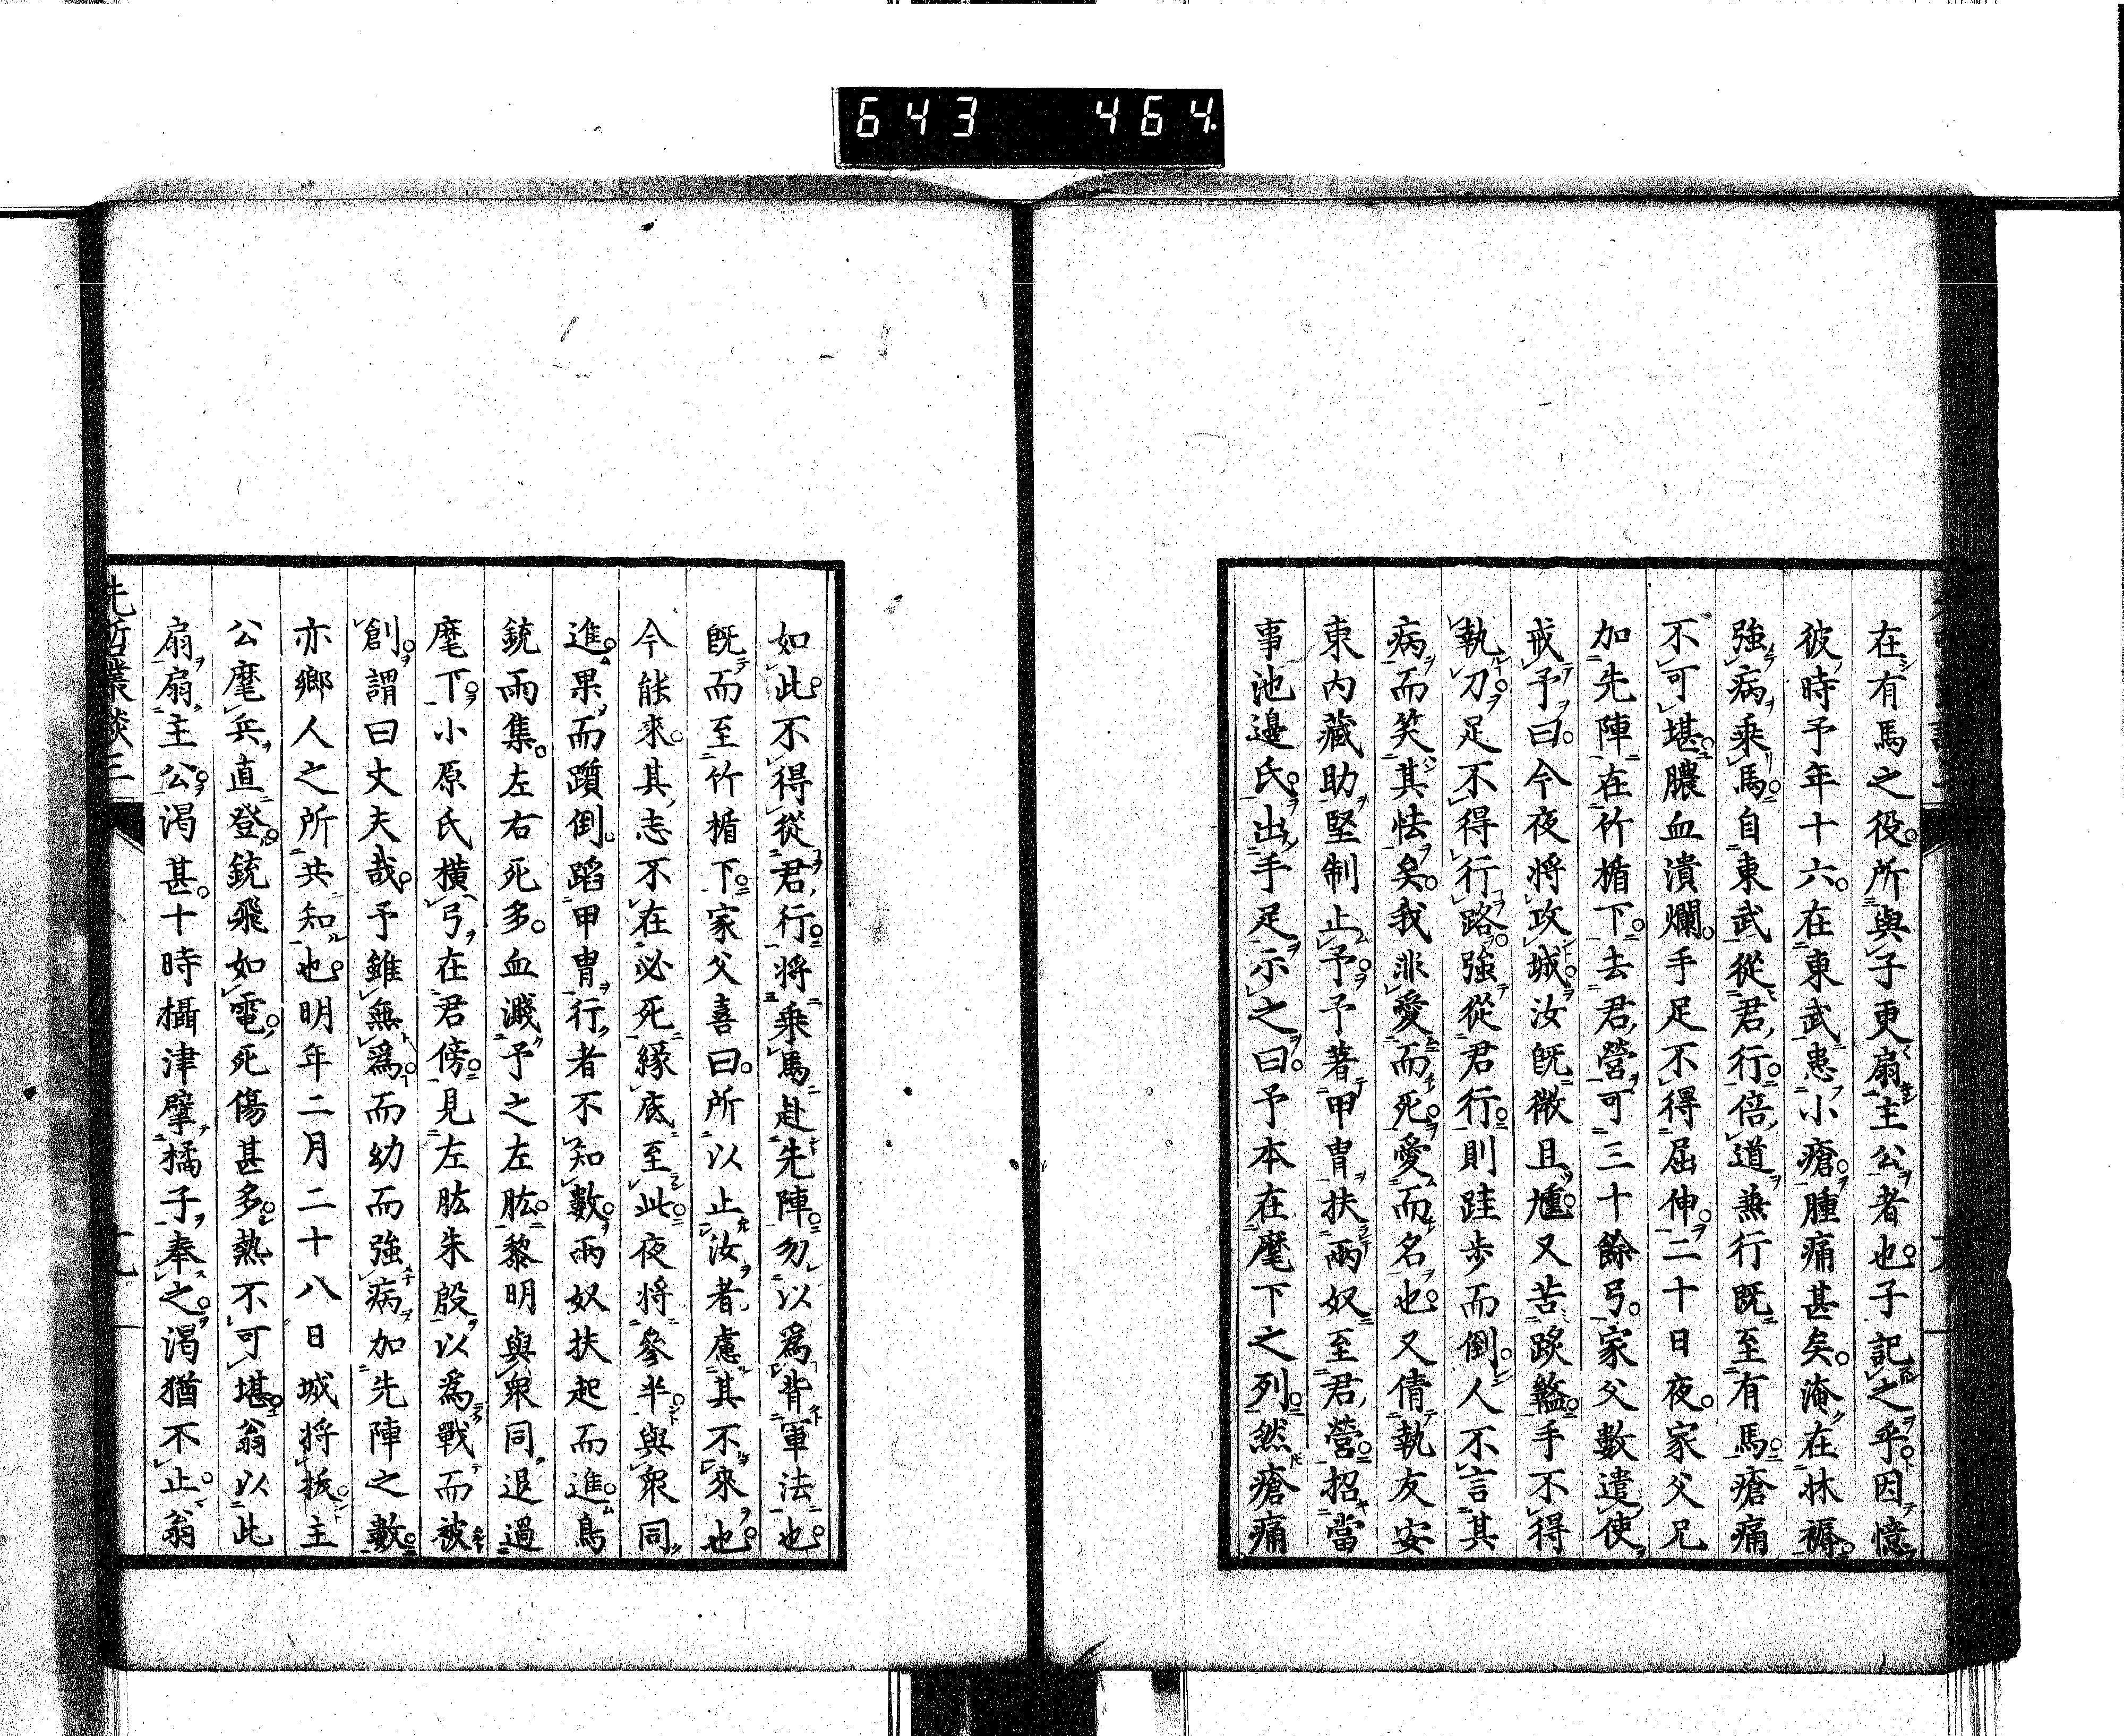 643 464
在有馬之役所與子更扇主公者也子記之乎因憶
彼時予年十六在東武患小瘡腫痛甚矣淹在牀褥
強病乘馬自東武從君行倍道兼行既至有馬瘡痛
不可堪膿血潰爛手足不得屈伸二十日夜家父兄
加先陣在竹楯下去君營可三十餘弓家父數遣使
戒予曰今夜將攻城汝既微且尰又苦蹊盭手不得
執刀足不得行路強從君行則跬步而倒人不言其
病而笑其怯矣我非愛而死愛而名也又倩執友安
東内藏助堅制止予予著甲冑扶兩奴至君營招當
事池邊氏出手足示之曰予本在麾下之列然瘡痛
如此不得從君行將乘馬赴先陣勿以爲背軍法也
既而至竹楯下家父喜曰所以止汝者慮其不來也
今能來其志不在必死緣底至此夜將參半與衆同
進果而躓倒蹈甲冑行者不知數兩奴扶起而進鳥
銃雨集左右死多血濺予之左肱黎明與衆同退過
麾下小原氏橫弓在君傍見左肱朱殷以爲戰而被
創謂曰丈夫哉予雖無爲而幼而強病加先陣之數
亦鄉人之所共知也明年二月二十八日城將拔主
公麾兵直登銃飛如電死傷甚多熱不可堪翁以此
扇扇主公渴甚十時攝津擘橘子奉之渴猶不止翁
先哲叢談三